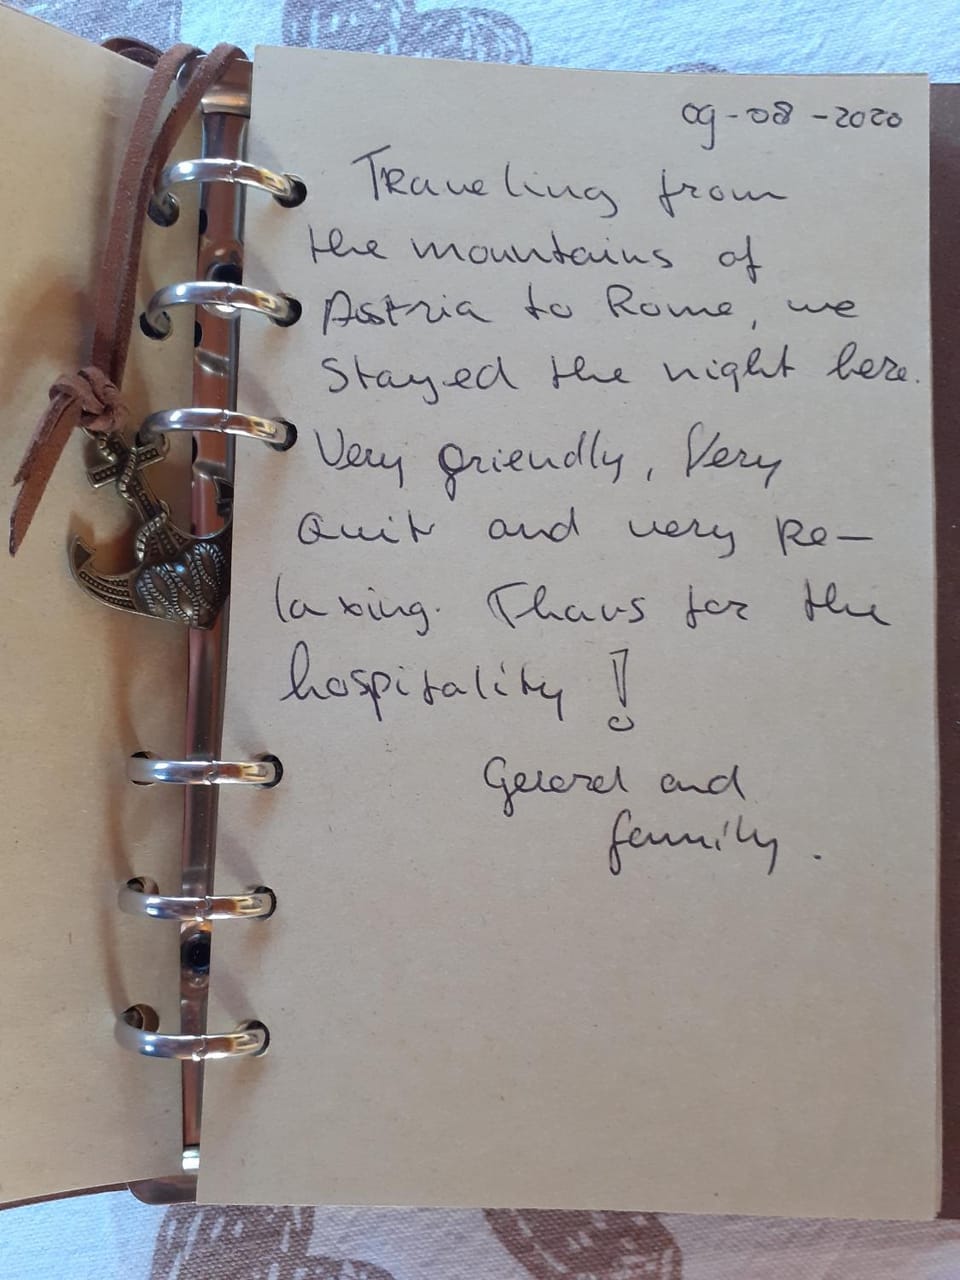 09-08-2020
Traveling from
the mountains of
Astria to Rome, we
stayed the night here.
Very friendly, Very
Quit and very Re-
laxing. Thavs for the
hospitality!
Gerard and
family.